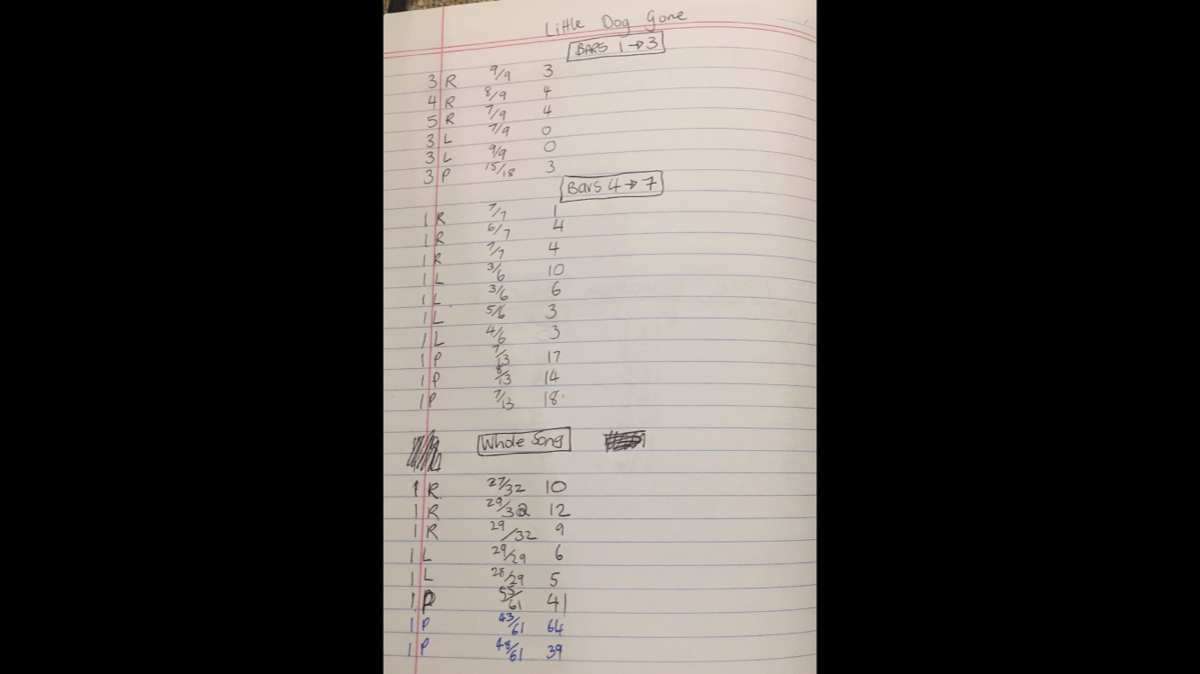 Little Dog Gone
BARS 1 → 3
3 R 9/9 3
4 R 8/9 4
5 R 7/9 4
3 L 7/9 0
3 L 9/9 0
3 P 15/18 3
Bars 4 → 7
1 R 7/7 1
1 R 6/7 4
1 R 7/7 4
1 L 3/6 10
1 L 3/6 6
1 L 5/6 3
1 L 4/6 3
1 P 7/13 17
1 P 8/13 14
1 P 7/13 18
Whole Song
1 R 27/32 10
1 R 29/32 12
1 R 29/32 9
1 L 29/29 6
1 L 28/29 5
1 P 55/61 41
1 P 43/61 64
1 P 48/61 39